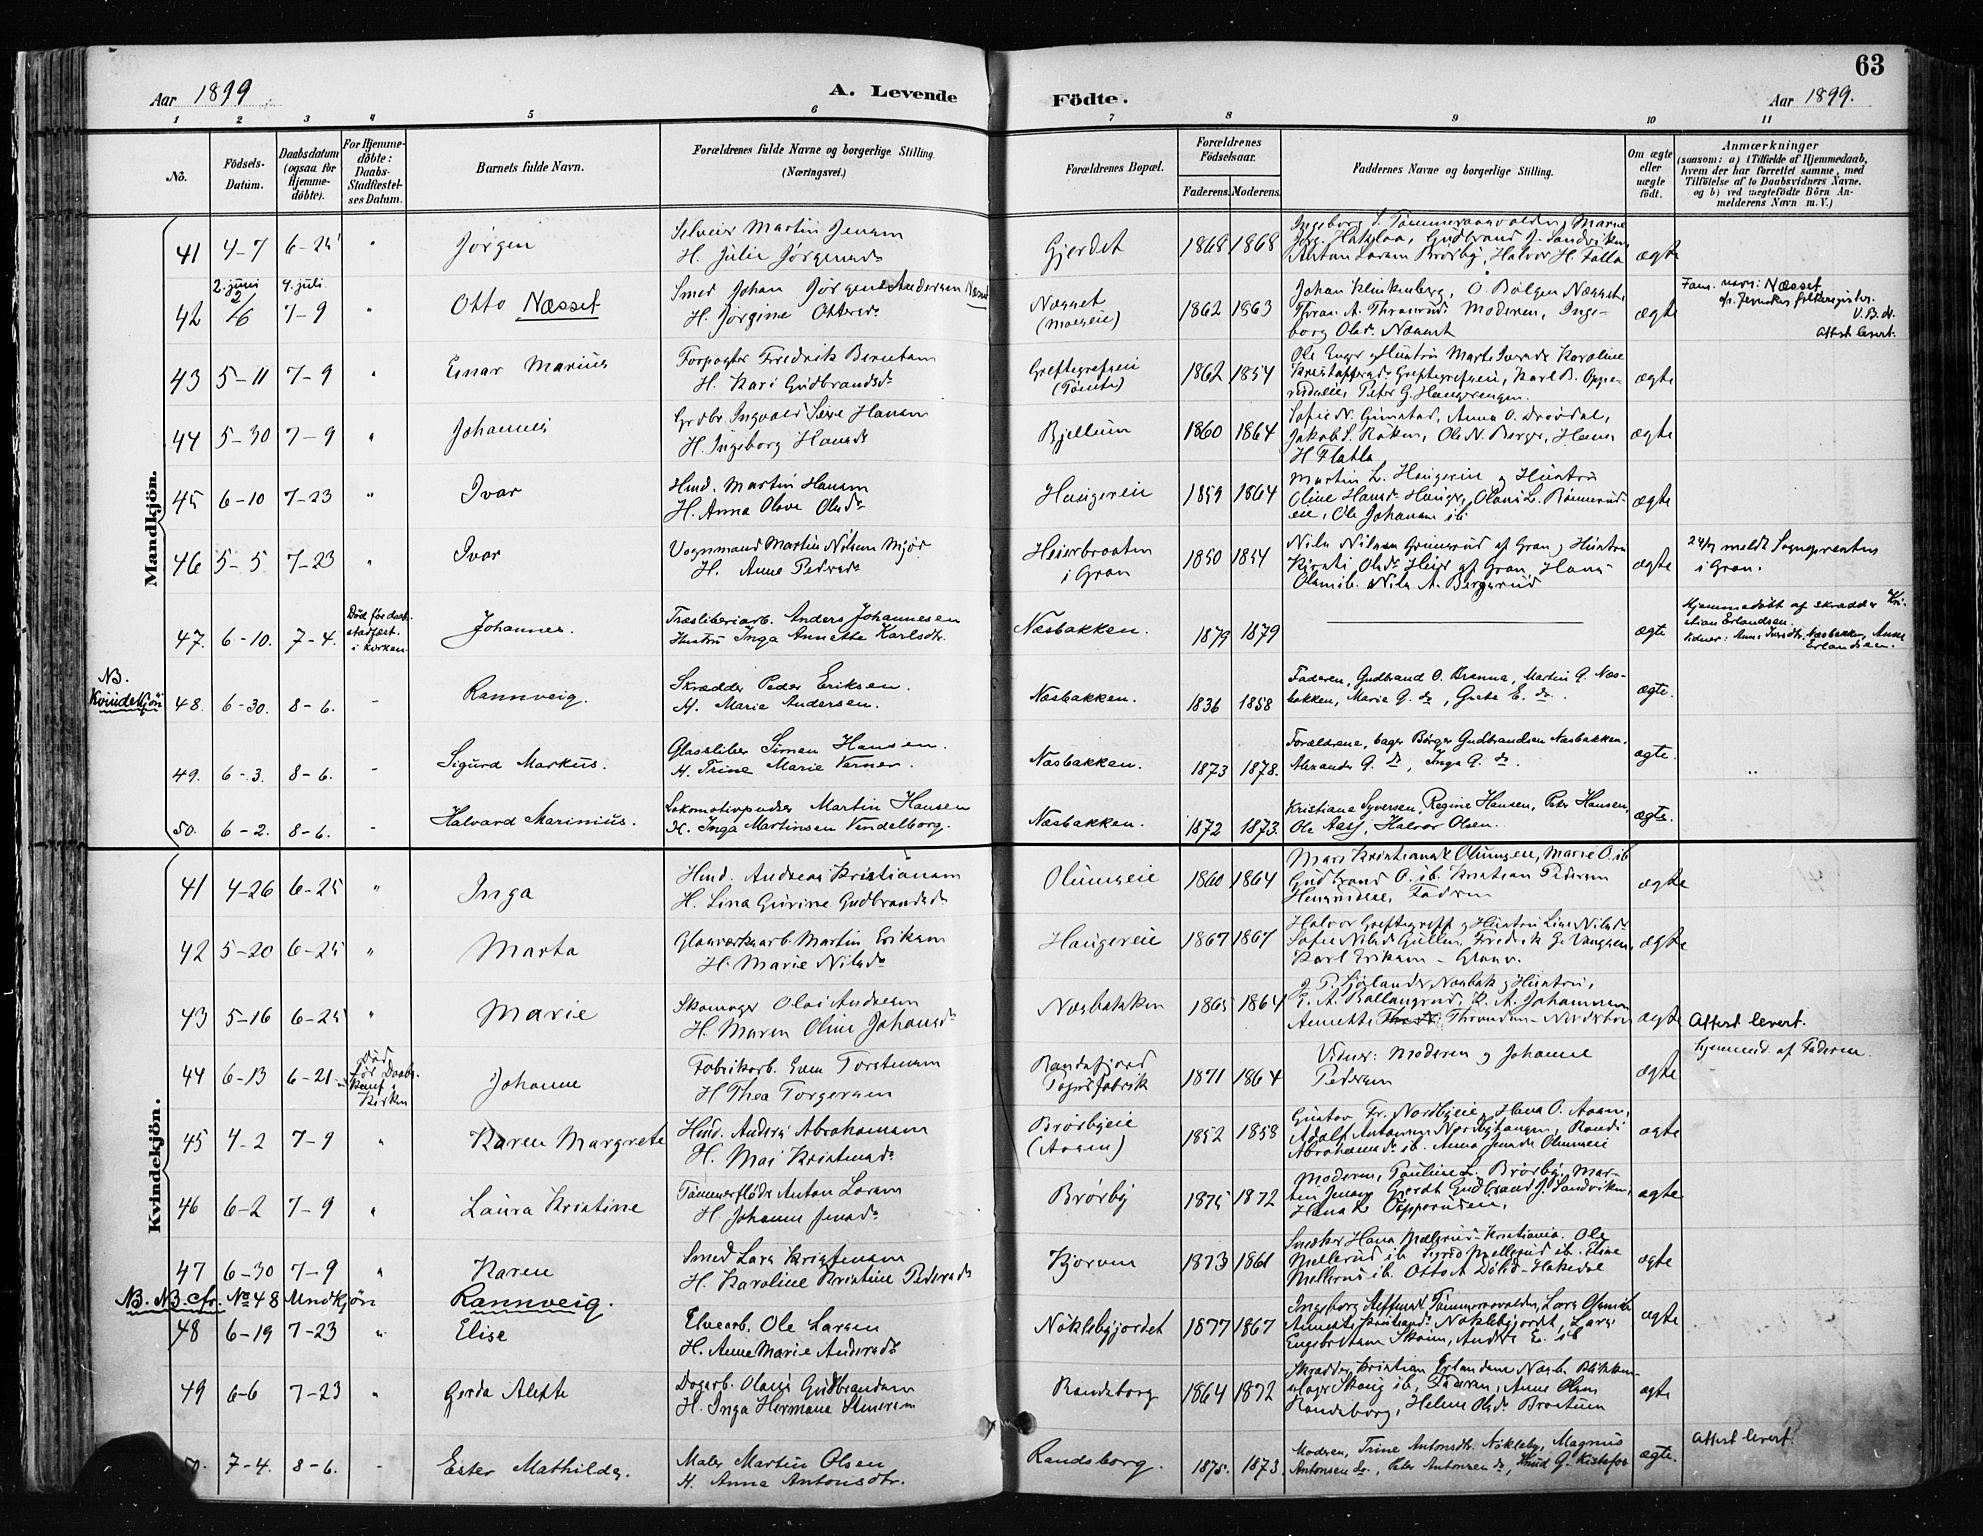 63
Aar 1899
A. Levende
Födte.
Aar 1899.
1 2 3 4 5 6 7 8 9 10 11
No.
Födsels-Datum.
Daabsdatum (ogsaa for Hjemme-döbte).
For Hjemme-döbte: Daabs-Stadfæstel-ses Datum.
Barnets fulde Navn.
Forældrenes fulde Navne og borgerlige Stilling. (Næringsvei.)
Forældrenes Bopæl.
Forældrenes Födselsaar.
Faderens. Moderens.
Faddernes Navne og borgerlige Stilling.
Om ægte eller uægte födt.
Anmærkninger
(saasom: a) i Tilfælde af Hjemmedaab, hvem der har forrettet samme, med Tilföielse af to Daabsvidners Navne, og b) ved uægtefödte Börn An-melderens Navn m. V.)
Mandkjön.
41 4-7 6-25 " Jørgen
H. Julie Jørgensd.
Gjerdet 1868 1868
Gudbrand J. Sandviken
Anton Larsen Brørby, Halvor H. Falla
ægte
2. juni 4. juli
42 2/6 7-9 " Otto Næsset
Smed Johan Jørgen Andersen
H. Jørgine Ottersd.
Næsset (Moeseie) 1862 1863
Johan Klinkenberg, O. Bølgen Næsset,
Moderen, Inge-
borg Olsd. Næsset
ægte
Fam. navn: Næsset
V. B. ds.
Attest levert.
43 5-11 7-9 " Einar Marius
Forpagter Fredrik Berntsen
H. Kari Gudbrandsd.
Greftegrefseie 1862 1854
Ole Enger og Hustru Marte Iversd. Karoline
Greftegrefseie, Karl B. Oppe-
Peter G. Haugerengen.
ægte
44 5-30 7-9 " Johannes
H. Ingeborg Hansd.
Bjellum 1860 1864
Sofie N. Grinstad, Anna O. Drøvdal,
Jakob S. Røken, Ole N. Berge, Hans
H Flatla
ægte
45 6-10 7-23 " Ivar
Husd. Martin Hansen
H. Anna Olava Olsd.
Haugereie 1859 1864
Martin L. Haugereie og Hustru
Oline Hansd. Hauger, Olaus L. Rønnerud-
eie, Ole Johansen ib.
ægte
46 5-5 7-23 " Ivar
Vognmand Martin Nilsen Mjør
H. Anne Pedersd.
Heierbraaten i Gran 1850 1854
Nils Nilsen Grinerud af Gran og Hustru
Kirsti Olsd. Heier af Gran, Hans
Olsen ib. Nils A. Bergerud
ægte
24/7 meldt Sognepræsten
i Gran.
47. 6-10. 7-4. Død før daab-
stadfæst.
i kirken Johannes.
Træsliberiarb. Anders Johannesen
Hustru Inga Annette Karlsdtr.
Næsbakken. 1879 1879
ægte
Hjemmedøbt af skrædder Kri-
stian Erlandsen.
Vidner: Anne Iversdtr. Næsbakken, Anne
Erlandsen.
NB.
Kvindekjön
48. 6-30. 8-6. - Rannveig.
Skrædder Peder Eriksen.
H. Marie Andersen.
Næsbakken. 1836 1858
Faderen, Gudbrand O. Brenna, Martin G. Næs-
bakken, Marie G. do, Grete E. do.
ægte.
49. 6-3. 8-6. - Sigurd Markus.
Glassliber Simen Hansen.
H. Trine Marie Verner.
Næsbakken. 1873 1878.
Forældrene, bager Børger Gudbrandsen Næsbakken,
Alexander G. do, Inga G. do.
ægte.
"
50. 6-2. 8-6. - Halvard Marinius.
Lokomotivpudser Martin Hansen
H. Inga Martinsen Vendelborg.
Næsbakken. 1872 1873.
Kristiane Syversen, Regine Hansen, Peter Hansen,
Ole Aasf, Halvor Olsen.
ægte.
Kvindekjön.
41 4-26 6-25 " Inga
Husd. Andreas Kristiansen
H. Lina Gurine Gudbrandsd.
Olumseie 1860 1864
Mari Kristiansd. Olumseie, Marie O. ib
Gudbrand O. ib. Kristian Pedersen
Faderen
ægte
42 5-20 6-25 " Marta
Glasværksarb. Martin Eriksen
H. Marie Nilsd.
Haugereie 1867 1867
Halvor Greftegreff og Hustru Line Nilsd.
Sofie Nilsd. Gullen, Fredrik G. Vangsen,
Karl Eriksen - Glasv.
ægte
43 5-16 6-25 " Marie
Skomager Olai Andresen
H. Maren Oline Johansd.
Næsbakken 1865 1864
J. P. Sjølander Næsbak. og Hustru,
E. A. Ballangrud, K. A. Johannesen
ægte
Attest levert.
44 6-13 6-21 Død
før Daabs
i Kirken Johanne
Fabrikarb. Even Torstensen
H Thea Torgersen
Randsfjord
Papirsfabrik 1871 1864
Vidner: Moderen og Johanne
Pedersen
ægte
Hjemmed. af Faderen.
45 4-2 7-9 " Karen Margrete
Husd. Anders Abrahamsen
H. Mai Kristensd.
Brørbyeie
(Aasen) 1852 1858
Gustav Fr. Nordbyeie, Hans O. Aasen,
Adolf Antonsen Nordbyhagen, Randi
Abrahamsd. ib. Anna Jensd. Olumseie
ægte
46 6-2 7-9 " Laura Kristine
Tømmerflöder Anton Larsen
H Johanne Jensd.
Brørby 1875 1872
Moderen, Pauline L. Brørby, Mar-
tin Jensen Gjerdt Gudbrand J. Sandviken,
ægte
47 6-30 7-9 " Karen
Smed Lars Kristensen
H. Karoline Kristine Pedersd.
Kjorven 1873 1861
Snedker Hans Mælerud - Kristiania. Ole
Mellerud ib. Sigrid Mellerud ib. Eline
Mellerud ib. Otto A Døhl - Hakedal
ægte
NB. NB. Cfr. No 48 Mndkjön Rannveig.
48 6-19 7-23 " Elise
Elvearb. Ole Larsen
H. Anne Marie Andersd.
Nøklebyjordet 1877 1867
Ingeborg Steffensd. Tømmeraasvolden, Lars Olsen ib
Annette Kristiansd. Nøklebyjordet, Lars
Engebretsen Skøien, Andre E. ib
ægte
49 6-6 7-23 " Gerda Alette
Dagarb. Olaus Gudbrandsen
H. Inga Hermana Simensen
Randsborg 1864 1872
Skrædder Kristian Erlandsen Næsb. Blikken-
slager Skoug ib, Faderen, Anne Olsen
Randsborg, Helene Olsd. Brattum
ægte
50. 7-4. 8-6. - Ester Mathilde.
Maler Martin Olsen
H. Anna Antonsdtr.
Randsborg. 1875. 1873.
Moderen, Trine Antonsdtr. Nøkleby, Magnus
Antonsen do., Peter Antonsen do, Knud G. Kistefos
ægte.
Attest levert.